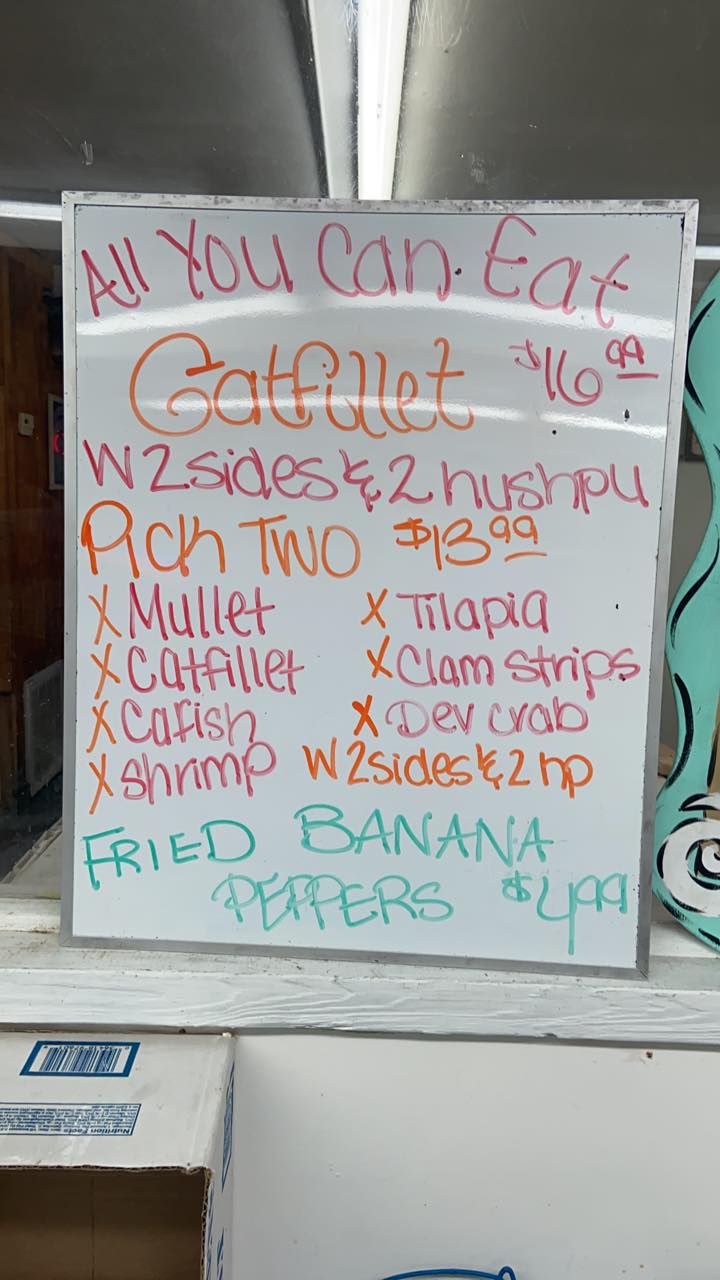 All You Can Eat
Catfillet $16.99
W 2sides & 2 hushpu
Pick Two $13.99
X Mullet X Tilapia
X Catfillet X Clam strips
X Cafish X Dev crab
X shrimp W 2sides & 2 hp
FRIED BANANA
PEPPERS $4.99
Nutrition Facts